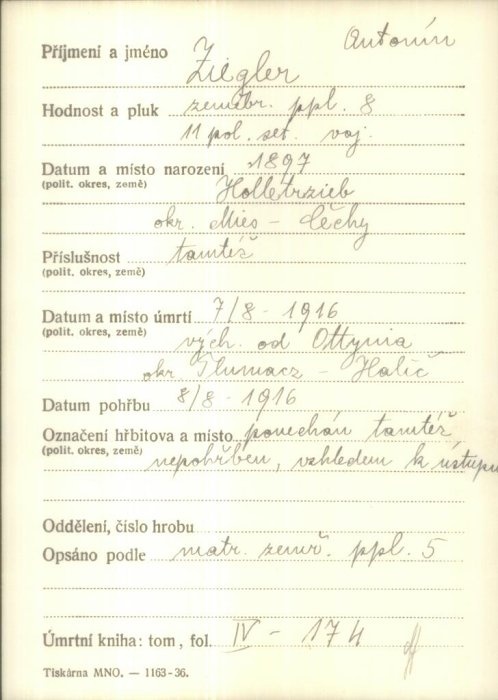 Antonín
Příjmení a jméno Ziegler
Hodnost a pluk zeměbr. ppl. 8
11 pol. set. voj.
Datum a místo narození 1897
(polit. okres, země) Holletrzieb
okr. Mies - Čechy
Příslušnost tamtéž
(polit. okres, země)
Datum a místo úmrtí 7/8 - 1916
(polit. okres, země) vých. od Ottynia
okr. Tlumacz - Halič
Datum pohřbu 8/8 - 1916
Označení hřbitova a místo ponechán tamtéž
(polit. okres, země) nepohřben, vzhledem k ústupu
Oddělení, číslo hrobu
Opsáno podle matr. zemř. ppl. 5
Úmrtní kniha: tom, fol. IV - 174
Tiskárna MNO. — 1163-36.